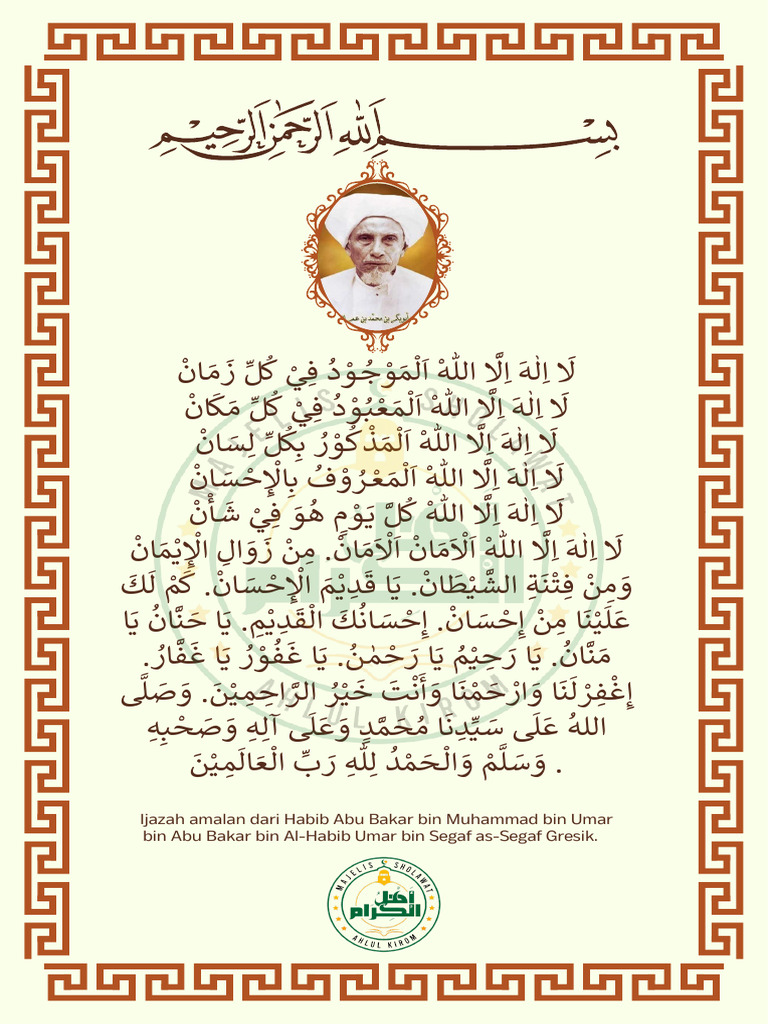 بِسْمِ اللهِ الرَّحْمٰنِ الرَّحِيْمِ
ابوبكر بن محمد بن عمر
لَا اِلٰهَ اِلَّا اللّٰهْ اَلْمَوْجُوْدُ فِيْ كُلِّ زَمَانْ
لَا اِلٰهَ اِلَّا اللّٰهْ اَلْمَعْبُوْدُ فِيْ كُلِّ مَكَانْ
لَا اِلٰهَ اِلَّا اللّٰهْ اَلْمَذْكُوْرُ بِكُلِّ لِسَانْ
لَا اِلٰهَ اِلَّا اللّٰهْ اَلْمَعْرُوْفُ بِالْإِحْسَانْ
لَا اِلٰهَ اِلَّا اللّٰهْ كُلَّ يَوْمٍ هُوَ فِيْ شَأْنْ
لَا اِلٰهَ اِلَّا اللّٰهْ اَلْاَمَانْ اَلْاَمَانْ. مِنْ زَوَالِ الْإِيْمَانْ
وَمِنْ فِتْنَةِ الشَّيْطَانْ. يَا قَدِيْمَ الْإِحْسَانْ. كَمْ لَكَ
عَلَيْنَا مِنْ إِحْسَانْ. إِحْسَانُكَ الْقَدِيْمِ. يَا حَنَّانُ يَا
مَنَّانُ. يَا رَحِيْمُ يَا رَحْمٰنُ. يَا غَفُوْرُ يَا غَفَّارُ.
إِغْفِرْلَنَا وَارْحَمْنَا وَأَنْتَ خَيْرُ الرَّاحِمِيْنَ. وَصَلَّى
اللهُ عَلَى سَيِّدِنَا مُحَمَّدٍ وَعَلَى آلِهِ وَصَحْبِهِ
وَسَلَّمْ وَالْحَمْدُ لِلّٰهِ رَبِّ الْعَالَمِيْنَ .
Ijazah amalan dari Habib Abu Bakar bin Muhammad bin Umar
bin Abu Bakar bin Al-Habib Umar bin Segaf as-Segaf Gresik.
MAJELIS SHOLAWAT
أهل
الكرام
AHLUL KIROM